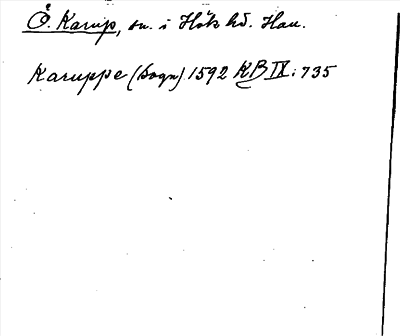 Ö. Karup, sn. i Hök hd. Hall.
Karuppe (sogn) 1592 KB IX: 735